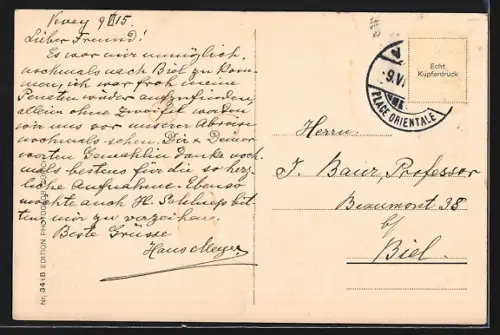 Vevey 9 VI 15.
Lieber Freund!
Es war mir unmöglich
nochmals nach Biel zu kom-
men, ich war froh meine
Penaten wieder aufzufinden,
allein ohne Zweifel werden
wir uns vor unserer Abreise
nochmals sehen. Dir & Deiner
werten Gemahlin danke noch-
mals bestens für die so herz-
liche Aufnahme. Ebenso
möchte auch H. bit-
ten mir zu verzeihen.
Beste Grüsse
Hans Meyer
Nr. 3418 EDITION
Echt
Kupferdruck
9.VI
PLACE ORIENTALE
Herrn
J. Baur, Professor
Beaumont 38
b/
Biel